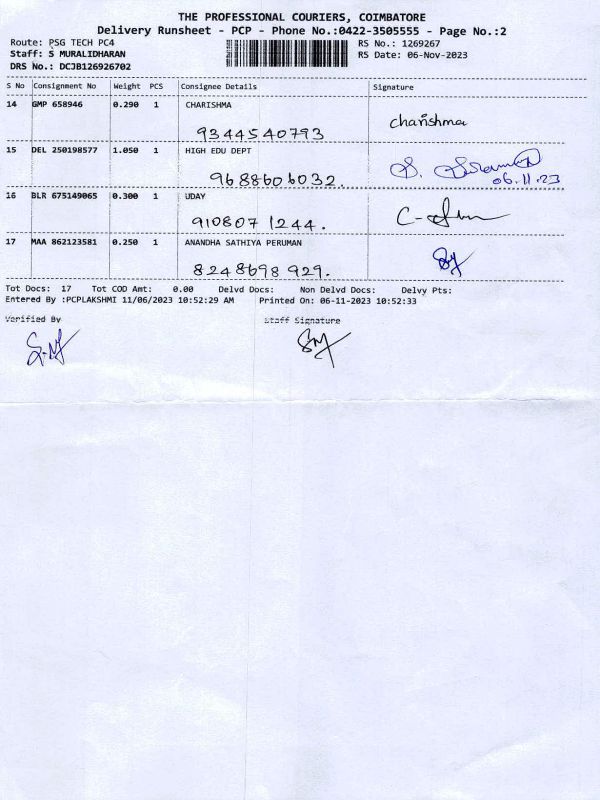 THE PROFESSIONAL COURIERS, COIMBATORE
Delivery Runsheet - PCP - Phone No.:0422-3505555 - Page No.:2
Route: PSG TECH PC4 RS No.: 1269267
Staff: S MURALIDHARAN RS Date: 06-Nov-2023
DRS No.: DCJB126926702
S No Consignment No Weight PCS Consignee Details Signature
14 GMP 658946 0.290 1 CHARISHMA
charishma
9344540793
15 DEL 250198577 1.050 1 HIGH EDU DEPT
9688606032. 06.11.23
16 BLR 675149065 0.300 1 UDAY
9108071244.
17 MAA 862123581 0.250 1 ANANDHA SATHIYA PERUMAN
8248698929.
Tot Docs: 17 Tot COD Amt: 0.00 Delvd Docs: Non Delvd Docs: Delvy Pts:
Entered By :PCPLAKSHMI 11/06/2023 10:52:29 AM Printed On: 06-11-2023 10:52:33
Verified By Staff Signature